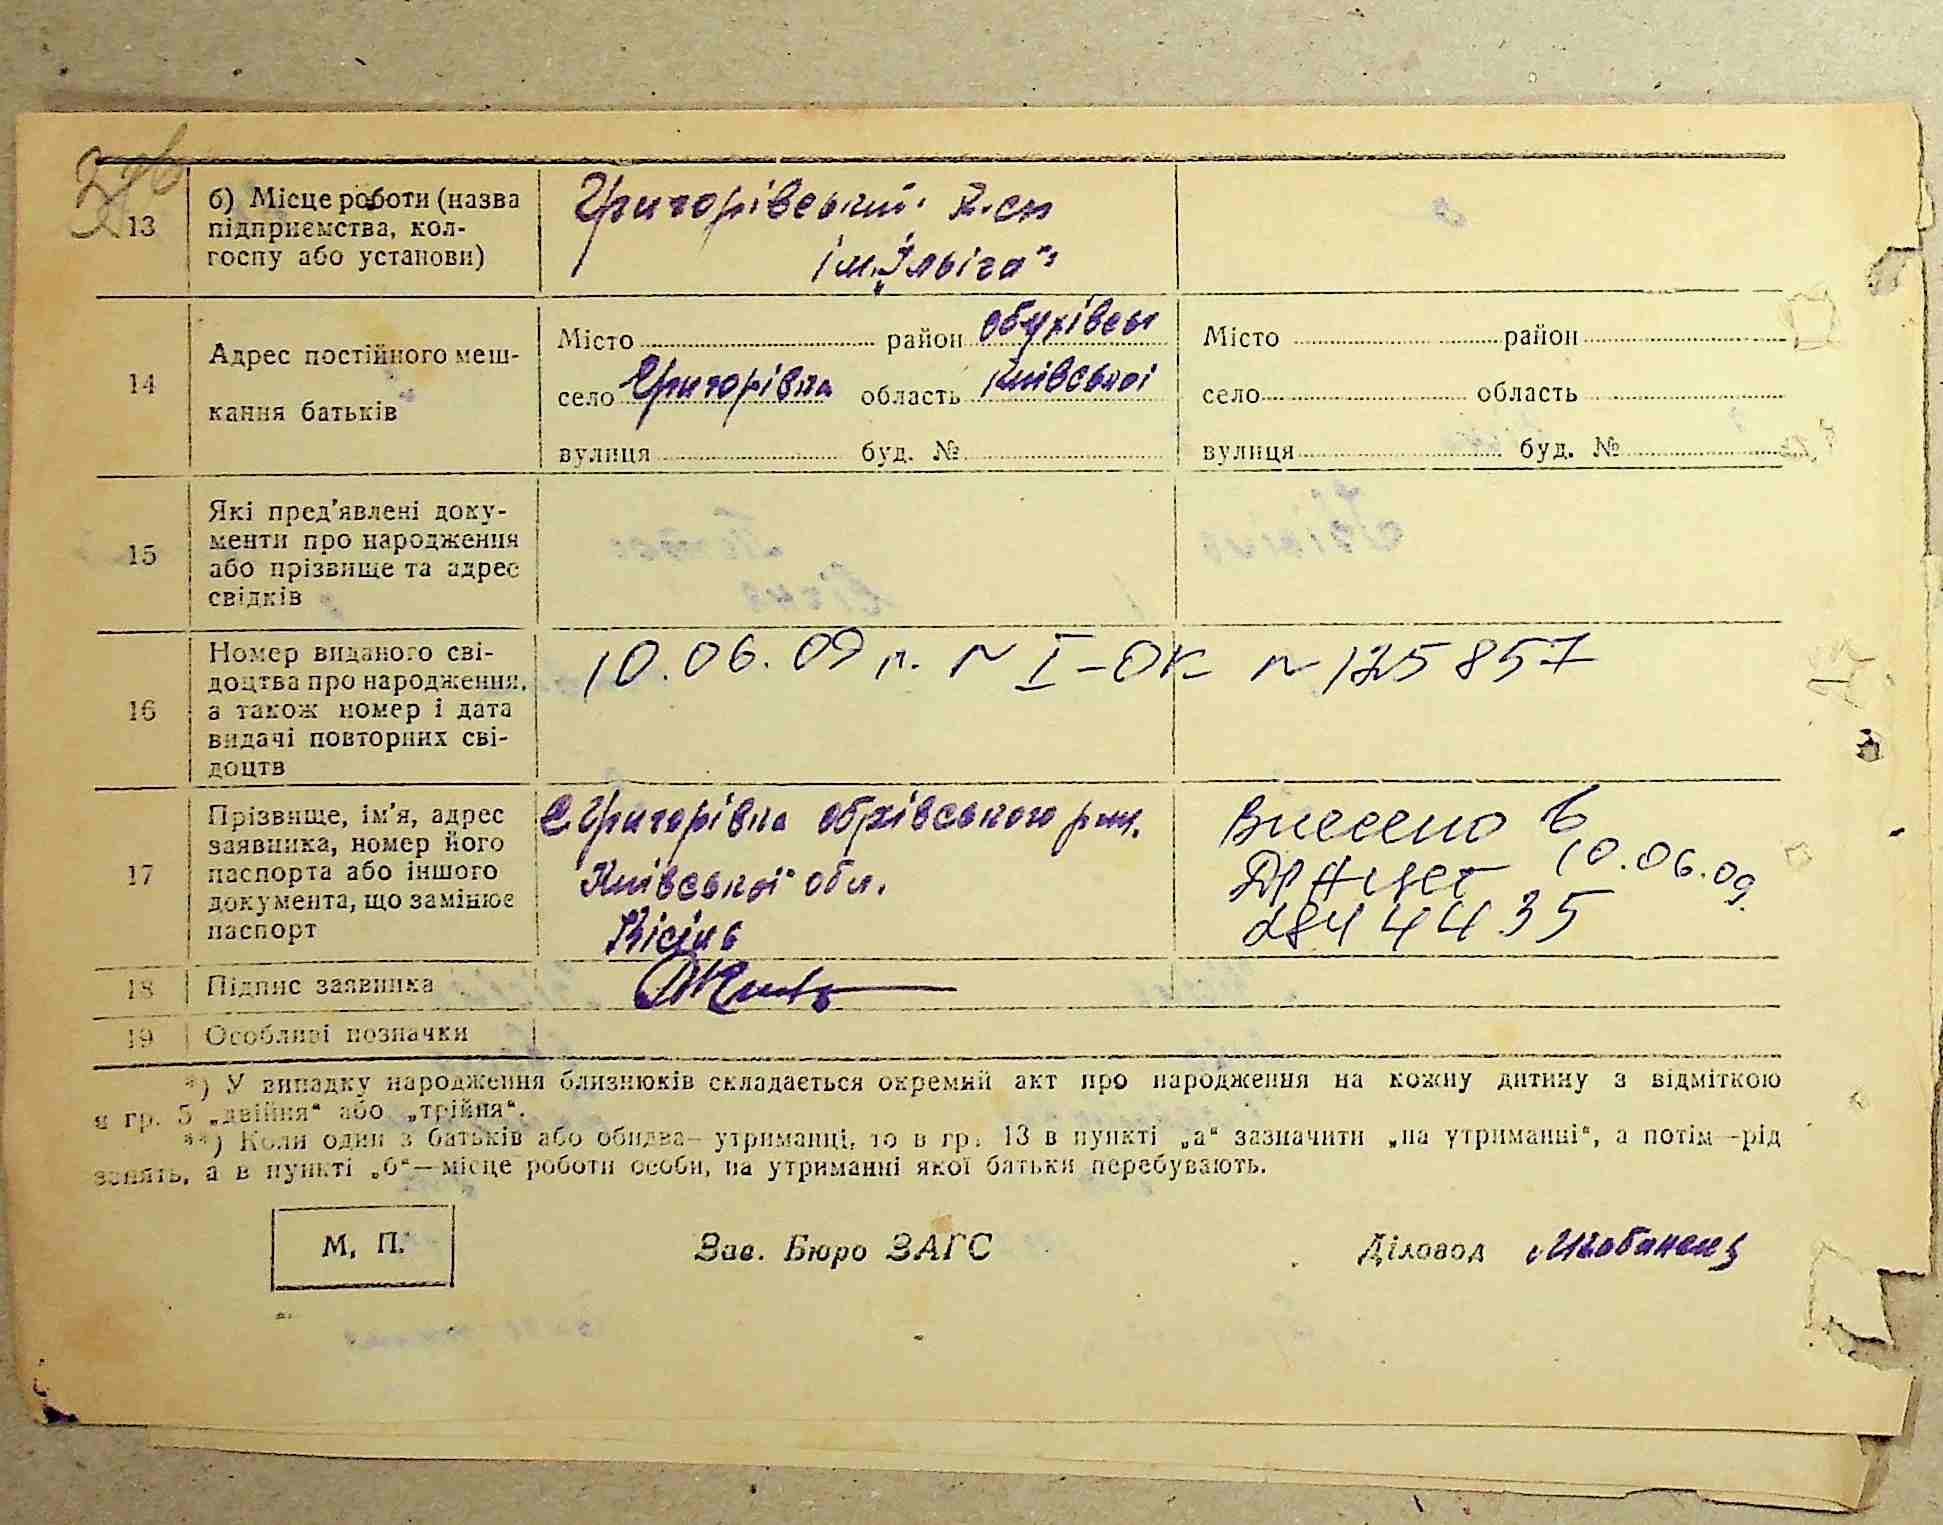 13
б) Місце роботи (назва
підприємства, кол-
госпу або установи)
Григорівський к-сп
ім. „Ілліча"
14
Адрес постійного меш-
кання батьків
Місто район Обухівськ
село Григорівка область Київської
вулиця буд. №
Місто район
село область
вулиця буд. №
15
Які пред'явлені доку-
менти про народження
або прізвище та адрес
свідків
16
Номер виданого сві-
доцтва про народження,
а також номер і дата
видачі повторних сві-
доцтв
10.06.09 р. N I-ОК N 125857
17
Прізвище, ім'я, адрес
заявника, номер його
паспорта або іншого
документа, що замінює
паспорт
с Григорівка Обухівського рай.
Київської обл.
Внесено в
10.06.09
2844435
18
Підпис заявника
19
Особливі позначки
*) У випадку народження близнюків складається окремий акт про народження на кожну дитину з відміткою
в гр. 5 „двійня" або „трійня".
**) Коли один з батьків або обидва—утриманці, то в гр. 13 в пункті „а" зазначити „на утриманні", а потім—рід
занять, а в пункті „б"—місце роботи особи, на утриманні якої батьки перебувають.
М. П.
Зав. Бюро ЗАГС
Діловод